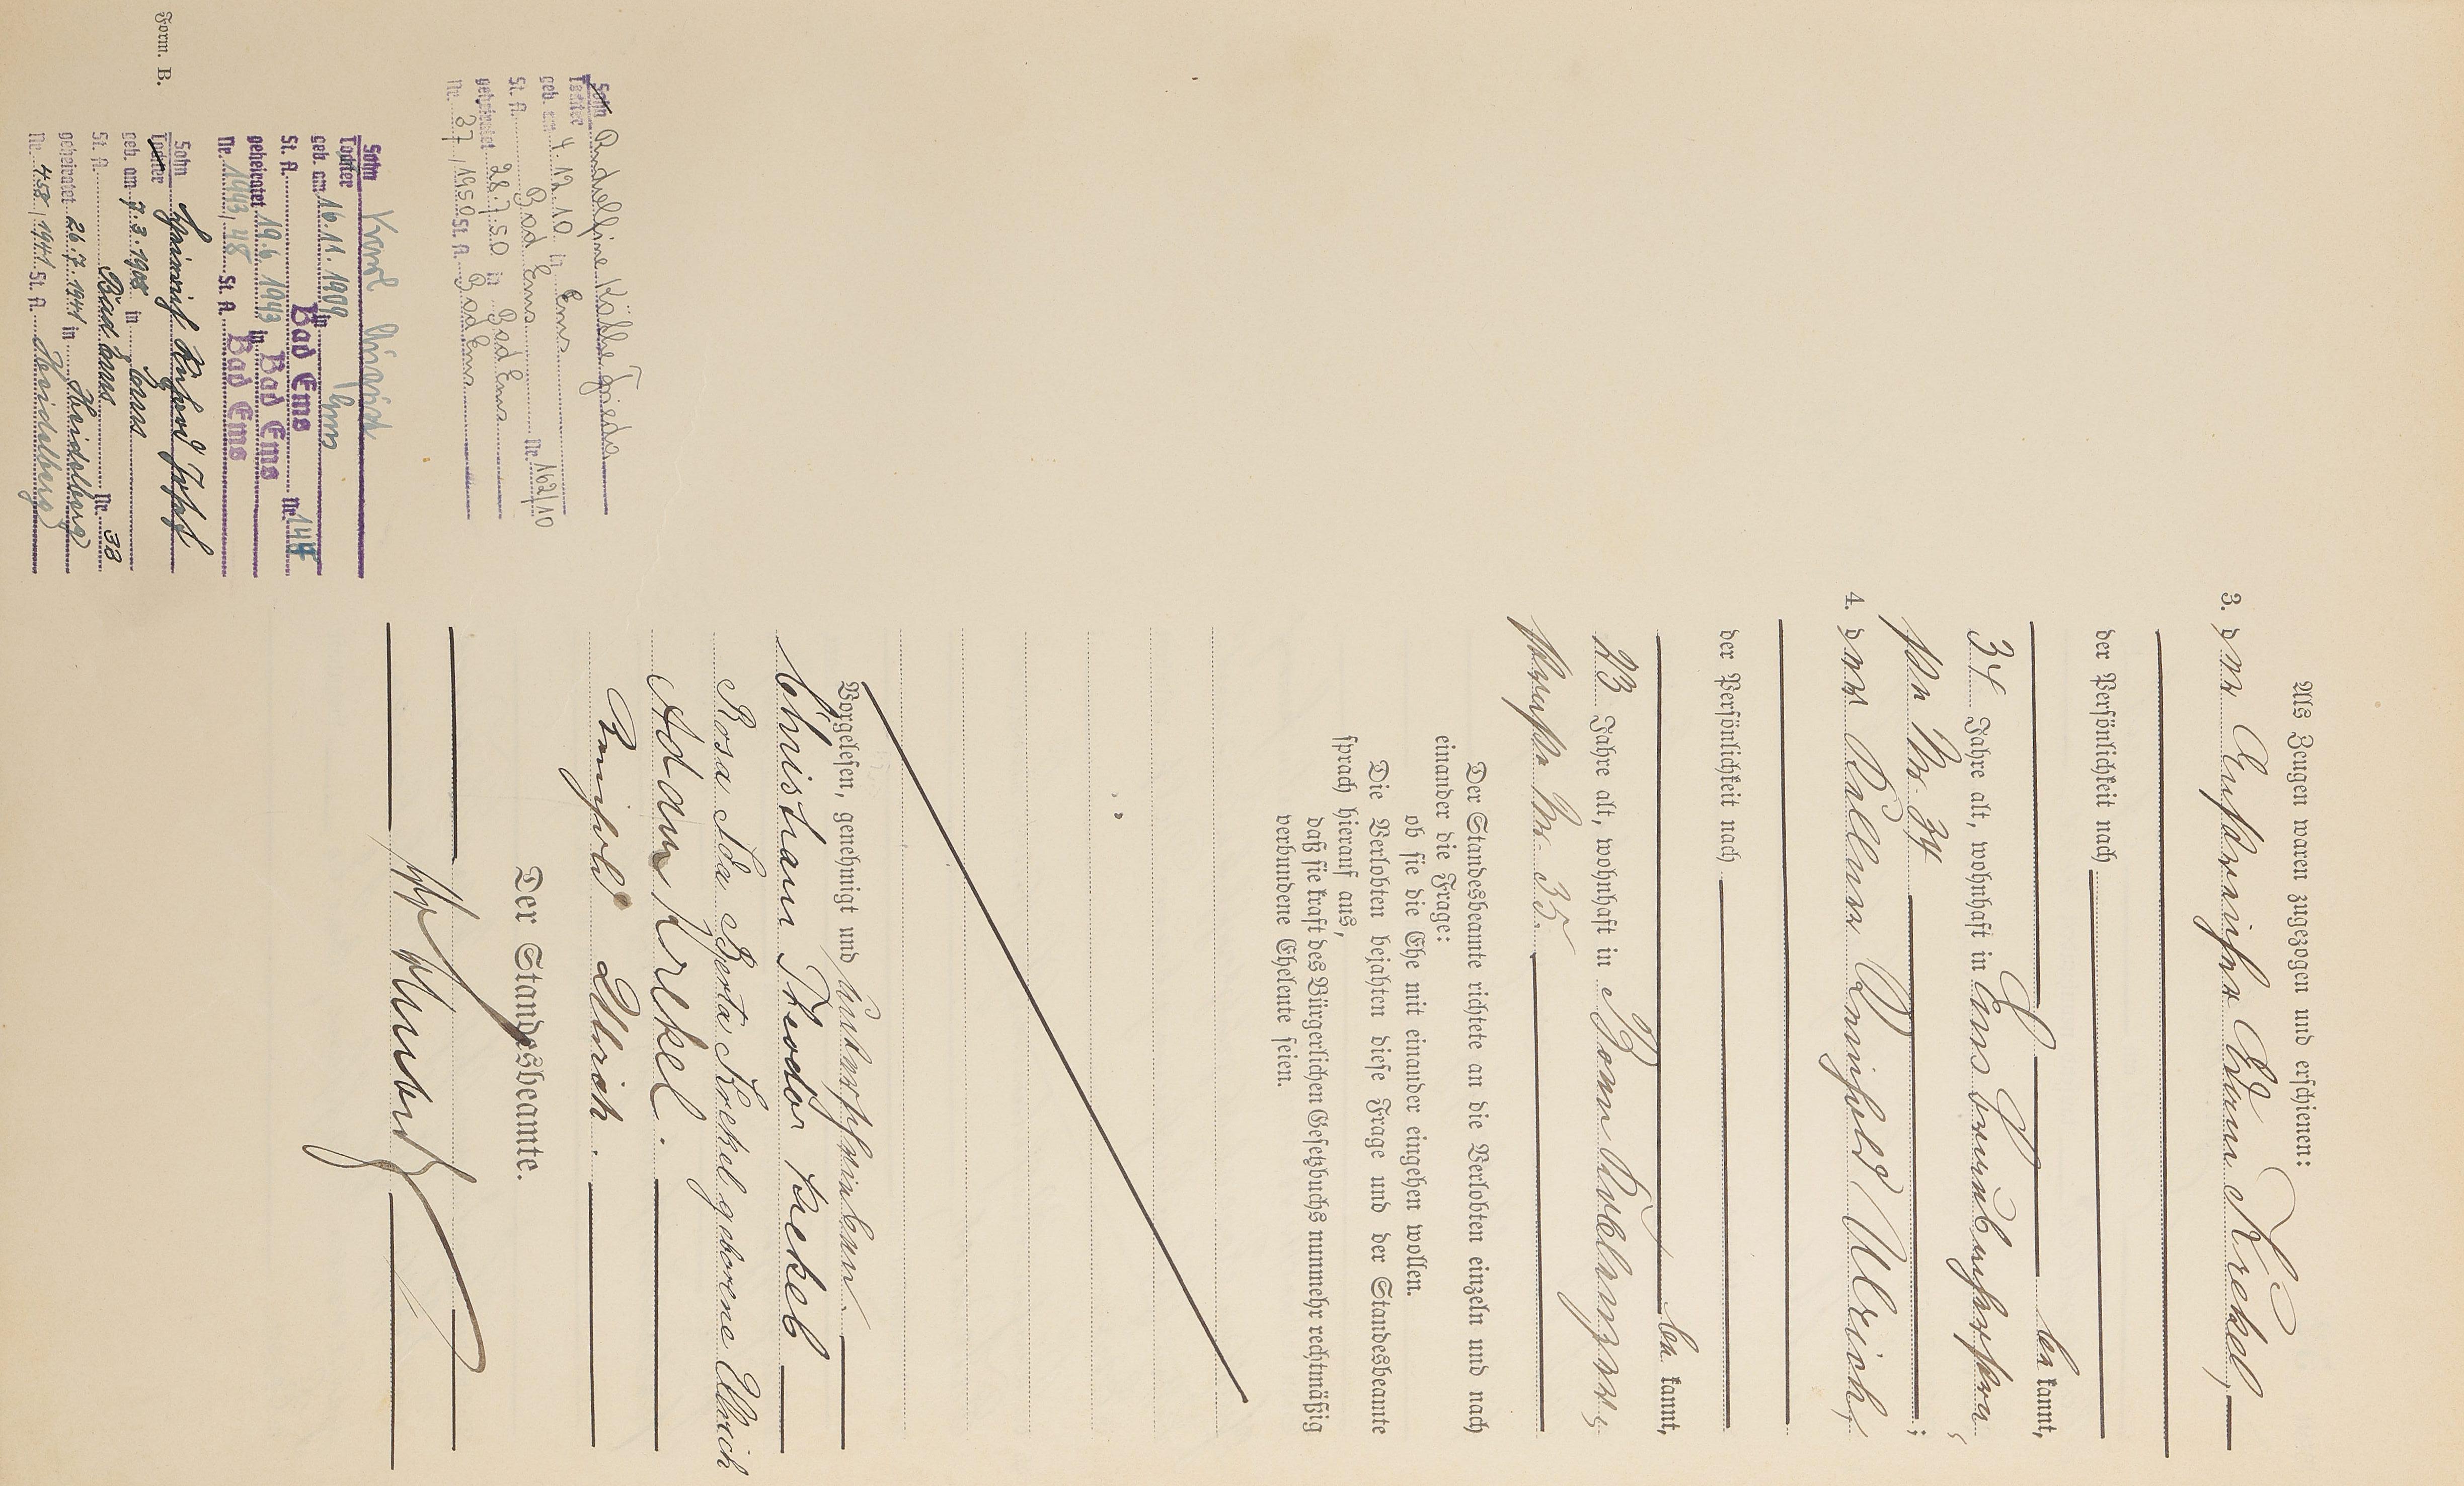 Als Zeugen waren zugezogen und erschienen:
3. der Adam Krekel,
der Persönlichkeit nach
be kannt,
34 Jahre alt, wohnhaft in Ems
Nr. 34;
4. der Reinhold Ullrich,
der Persönlichkeit nach
be kannt,
23 Jahre alt, wohnhaft in Bonn
Nr. 35.
Der Standesbeamte richtete an die Verlobten einzeln und nach
einander die Frage:
ob sie die Ehe mit einander eingehen wollen.
Die Verlobten bejahten diese Frage und der Standesbeamte
sprach hierauf aus,
daß sie kraft des Bürgerlichen Gesetzbuchs nunmehr rechtmäßig
verbundene Eheleute seien.
Vorgelesen, genehmigt und unterschrieben.
Christian Theodor Krekel
Rosa Ida Berta Krekel geborene Ullrich
Adam Krekel.
Reinhold Ullrich.
Der Standesbeamte.
Sohn
Tochter Käthe Frieda
geb. am 4.12.10 in Ems
St. A. Bad Ems Nr. 162/10
geheiratet 28.7.50 in Bad Ems
Nr. 37/1950 St. A. Bad Ems
Sohn Karl
Tochter
geb. am 16.11.1909 in Ems
St. A. Bad Ems Nr. 144
geheiratet 19.6.1943 in Bad Ems
Nr. 1943/48 St. A. Bad Ems
Form. B.
Sohn Heinrich Josef
Tochter
geb. am 7.3.1908 in Ems
St. A. Bad Ems Nr. 38
geheiratet 26.7.1941 in Heidelberg
Nr. 458/1941 St. A. Heidelberg